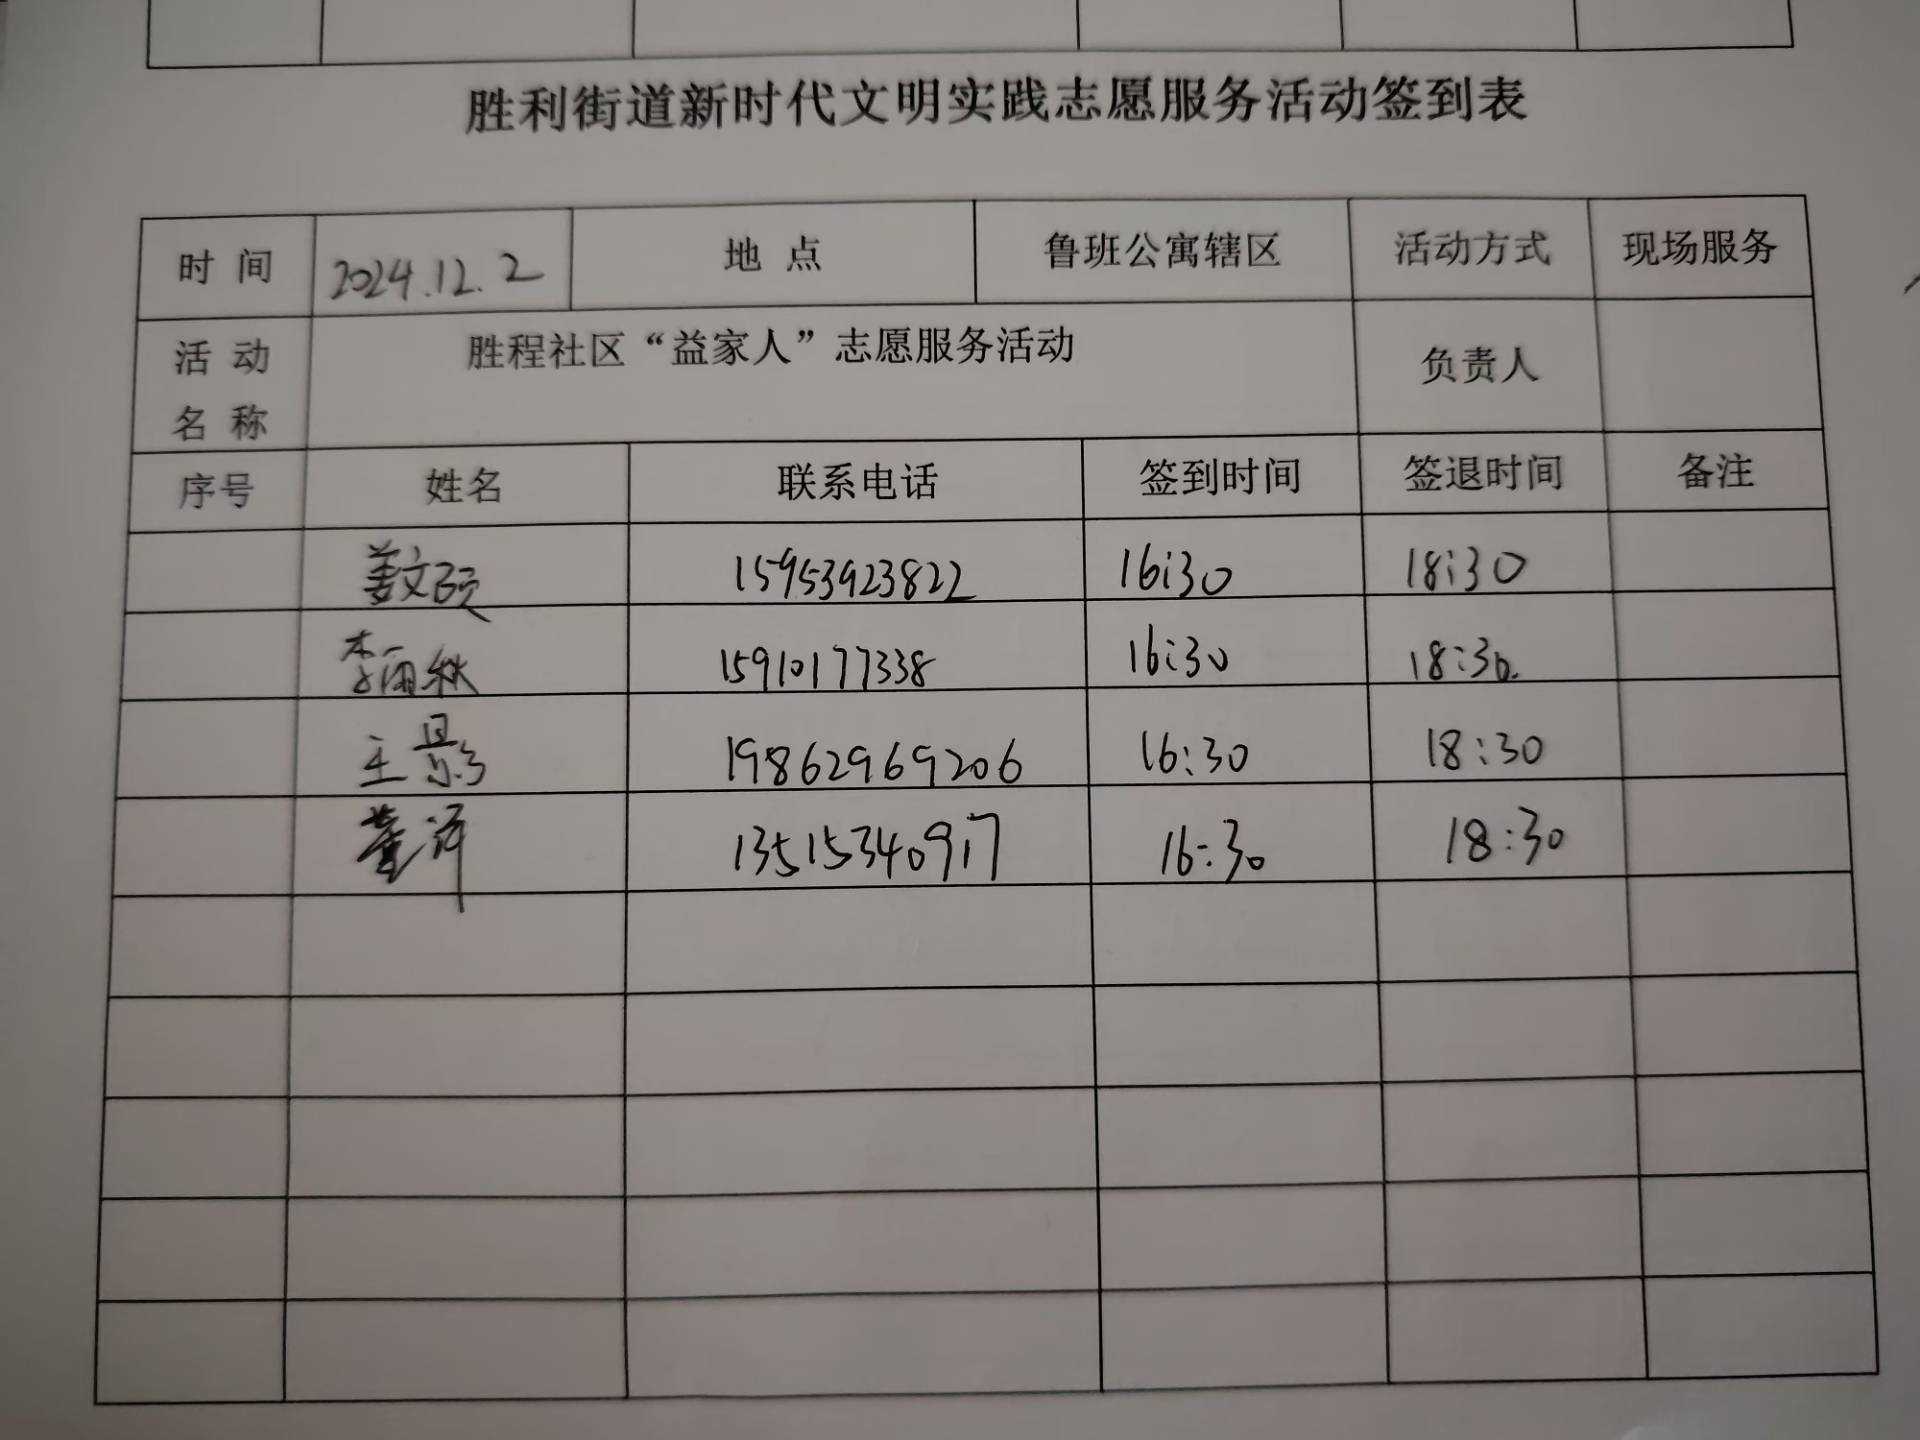 胜利街道新时代文明实践志愿服务活动签到表
时 间 2024.12.2 地 点 鲁班公寓辖区 活动方式 现场服务
活 动 名 称 胜程社区“益家人”志愿服务活动 负责人
序号 姓名 联系电话 签到时间 签退时间 备注
姜文硕 15953923822 16:30 18:30
李 秋 15910177338 16:30 18:30
王影 19862969206 16:30 18:30
董泽 13515340917 16:30 18:30